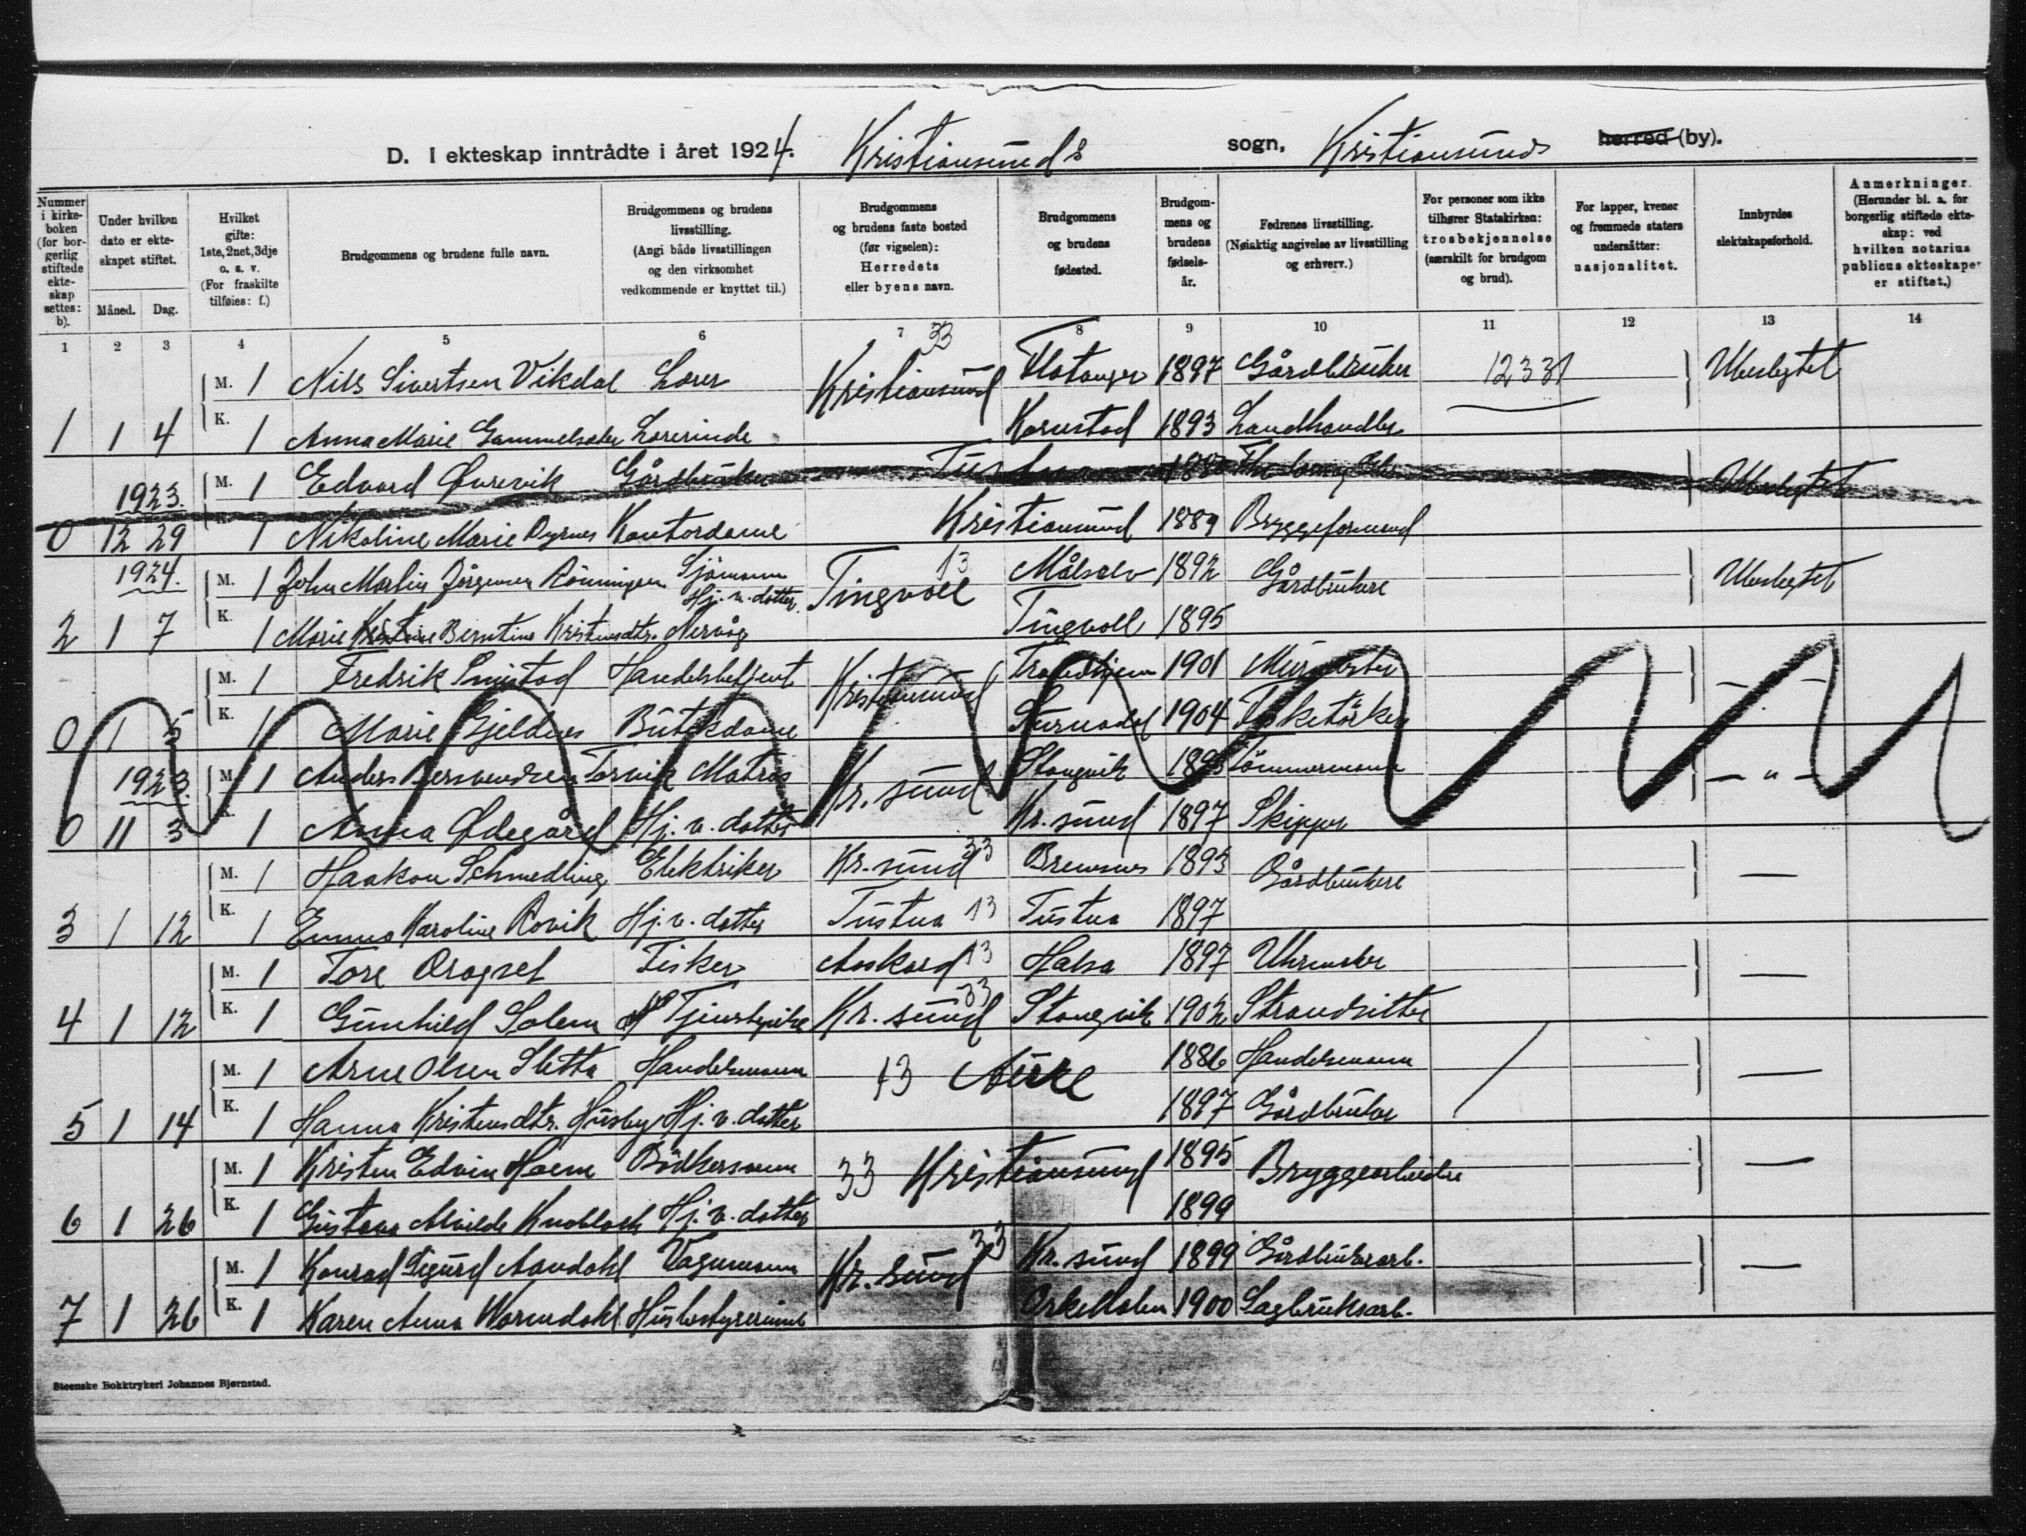 D. I ekteskap inntrådte i året 1924. Kristiansunds sogn, Kristiansunds herred (by).
Nummer i kirkeboken (for borgerlig stiftede ekteskap settes: b).
Under hvilken dato er ekteskapet stiftet.
Måned. Dag.
Hvilket gifte: 1ste, 2net, 3dje o. s. v. (For fraskilte tilføies: f.)
Brudgommens og brudens fulle navn.
Brudgommens og brudens livsstilling. (Angi både livsstillingen og den virksomhet vedkommende er knyttet til.)
Brudgommens og brudens faste bosted (før vigselen): Herredets eller byens navn.
Brudgommens og brudens fødested.
Brudgommens og brudens fødselsår.
Fedrenes livsstilling. (Nøiaktig angivelse av livsstilling og erhverv.)
For personer som ikke tilhører Statskirken: trosbekjennelse (særskilt for brudgom og brud).
For lapper, kvener og fremmede staters undersåtter: nasjonalitet.
Innbyrdes slektskapsforhold.
Anmerkninger. (Herunder bl. a. for borgerlig stiftede ekteskap: ved hvilken notarius publicus ekteskapet er stiftet.)
1 2 3 4 5 6 7 8 9 10 11 12 13 14
33
M. 1 Nils Sivertsen Vikdal Lærer Kristiansund Flatanger 1897 Gårdbruker 12331 Ubeslegtet
1 1 4 K. 1 Anna Marie Gammelsæter Lærerinde Kornstad 1893 Landhandler
1923. M. 1 Edvard Øvrevik Gårdbruker Tustna Ubeslegtet
0 12 29 K. 1 Nikoline Marie Dyrnes Kontordame Kristiansund 1889 Bryggeformand
1924. M. 1 John Martin Jörgensen Rönningen Sjömann Tingvoll 13 Målselv 1892 Gårdbrukere Ubeslegtet
Hj. v. datter.
2 1 7 K. 1 Marie Berntine Kristensdtr. Nervåg Tingvoll 1895
M. 1 Fredrik Smistad Handelsbetjent Kristiansund Trondhjem 1901 Murmester — " —
0 1 5 K. 1 Marie Gjeldnes Butikdame Surnadal 1904 Fisketörker
1923. M. 1 Anders Torvik Matros Kr. sund Stangvik Tömmermann — " —
0 11 3 K. 1 Anna Ødegård Hj. v. datter Kr. sund 1897 Skipper
M. 1 Haakon Schmedling Elektriker Kr. sund 33 Bremsnes 1893 Gårdbrukere —
3 1 12 K. 1 Emma Karoline Rovik Hj. v. datter Tustna 13 Tustna 1897
M. 1 Tore Dragset Fisker Aaskard 13 Halsa 1897 Uhrmaker —
4 1 12 K. 1 Gunhild Solem Tjenestepike Kr. sund 33 Stangvik 1902 Strandsitter
M. 1 Arne Olsen Sletta Handelsmann 13 Aure 1886 Handelsmann —
5 1 14 K. 1 Hanna Kristensdtr. Husby Hj. v. datter 1897 Gårdbruker
M. 1 Kristen Edvin Hoem Bödkersvenn 33 Kristiansund 1895 Bryggearbeidere —
6 1 26 K. 1 Gustava Alvilde Knobloch Hj. v. datter 1899
M. 1 Konrad Sigurd Aandahl Vognmann Kr. sund 33 Kr. sund 1899 Gårdbrukerarb. —
7 1 26 K. 1 Karen Anna Wormdahl Husbestyrerinde Orkedalen 1900 Sagbruksarb.
Steenske Bokktrykeri Johannes Bjørnstad.